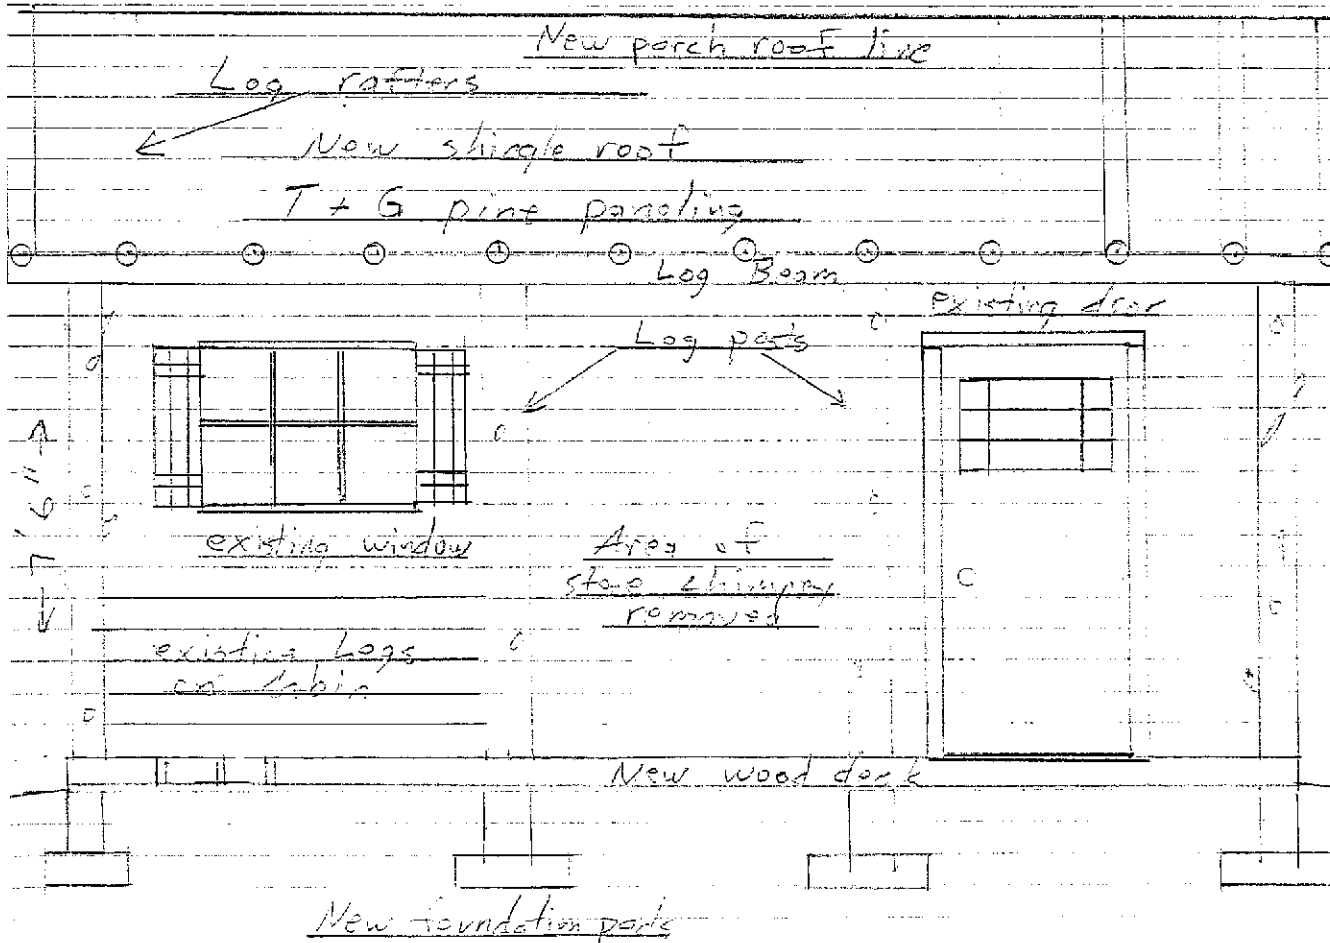 New porch roof line
Log rafters
New shingle roof
T + G pine paneling
Log Beam
existing door
Log posts
7'6"
existing window
Area of
stone chimney
removed
existing Logs
on cabin
New wood deck
New foundation pads